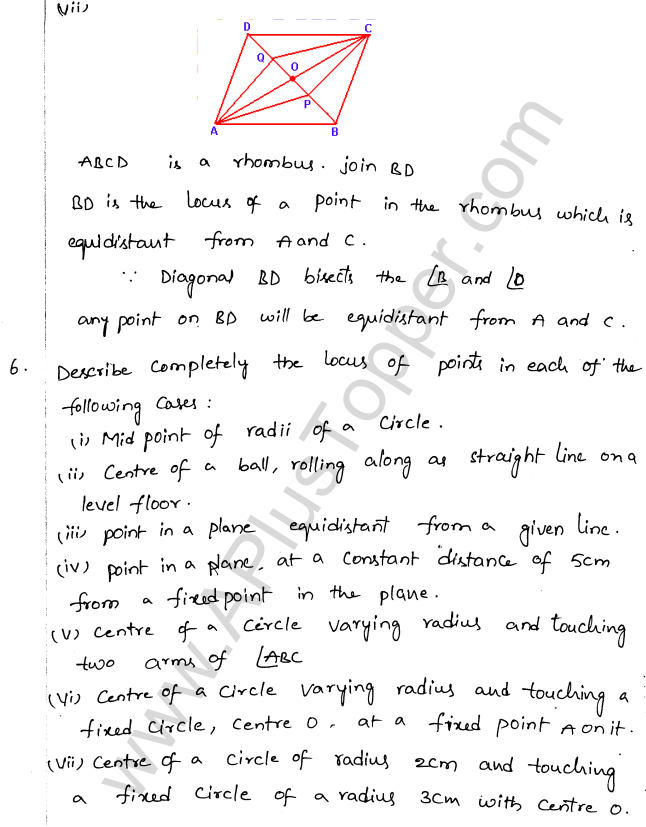 (vii)
D C
Q O
P
A B
ABCD is a rhombus. join BD
BD is the locus of a point in the rhombus which is
equidistant from A and C.
∵ Diagonal BD bisects the ∠B and ∠D
any point on BD will be equidistant from A and C.
6. Describe completely the locus of points in each of the
following cases:
(i) Mid point of radii of a circle.
(ii) Centre of a ball, rolling along as straight line on a
level floor.
(iii) point in a plane equidistant from a given line.
(iv) point in a plane, at a constant distance of 5cm
from a fixed point in the plane.
(v) centre of a circle varying radius and touching
two arms of ∠ABC
(vi) Centre of a circle varying radius and touching a
fixed circle, centre O, at a fixed point A on it.
(vii) Centre of a circle of radius 2cm and touching
a fixed circle of a radius 3cm with centre O.
www.APlusTopper.com